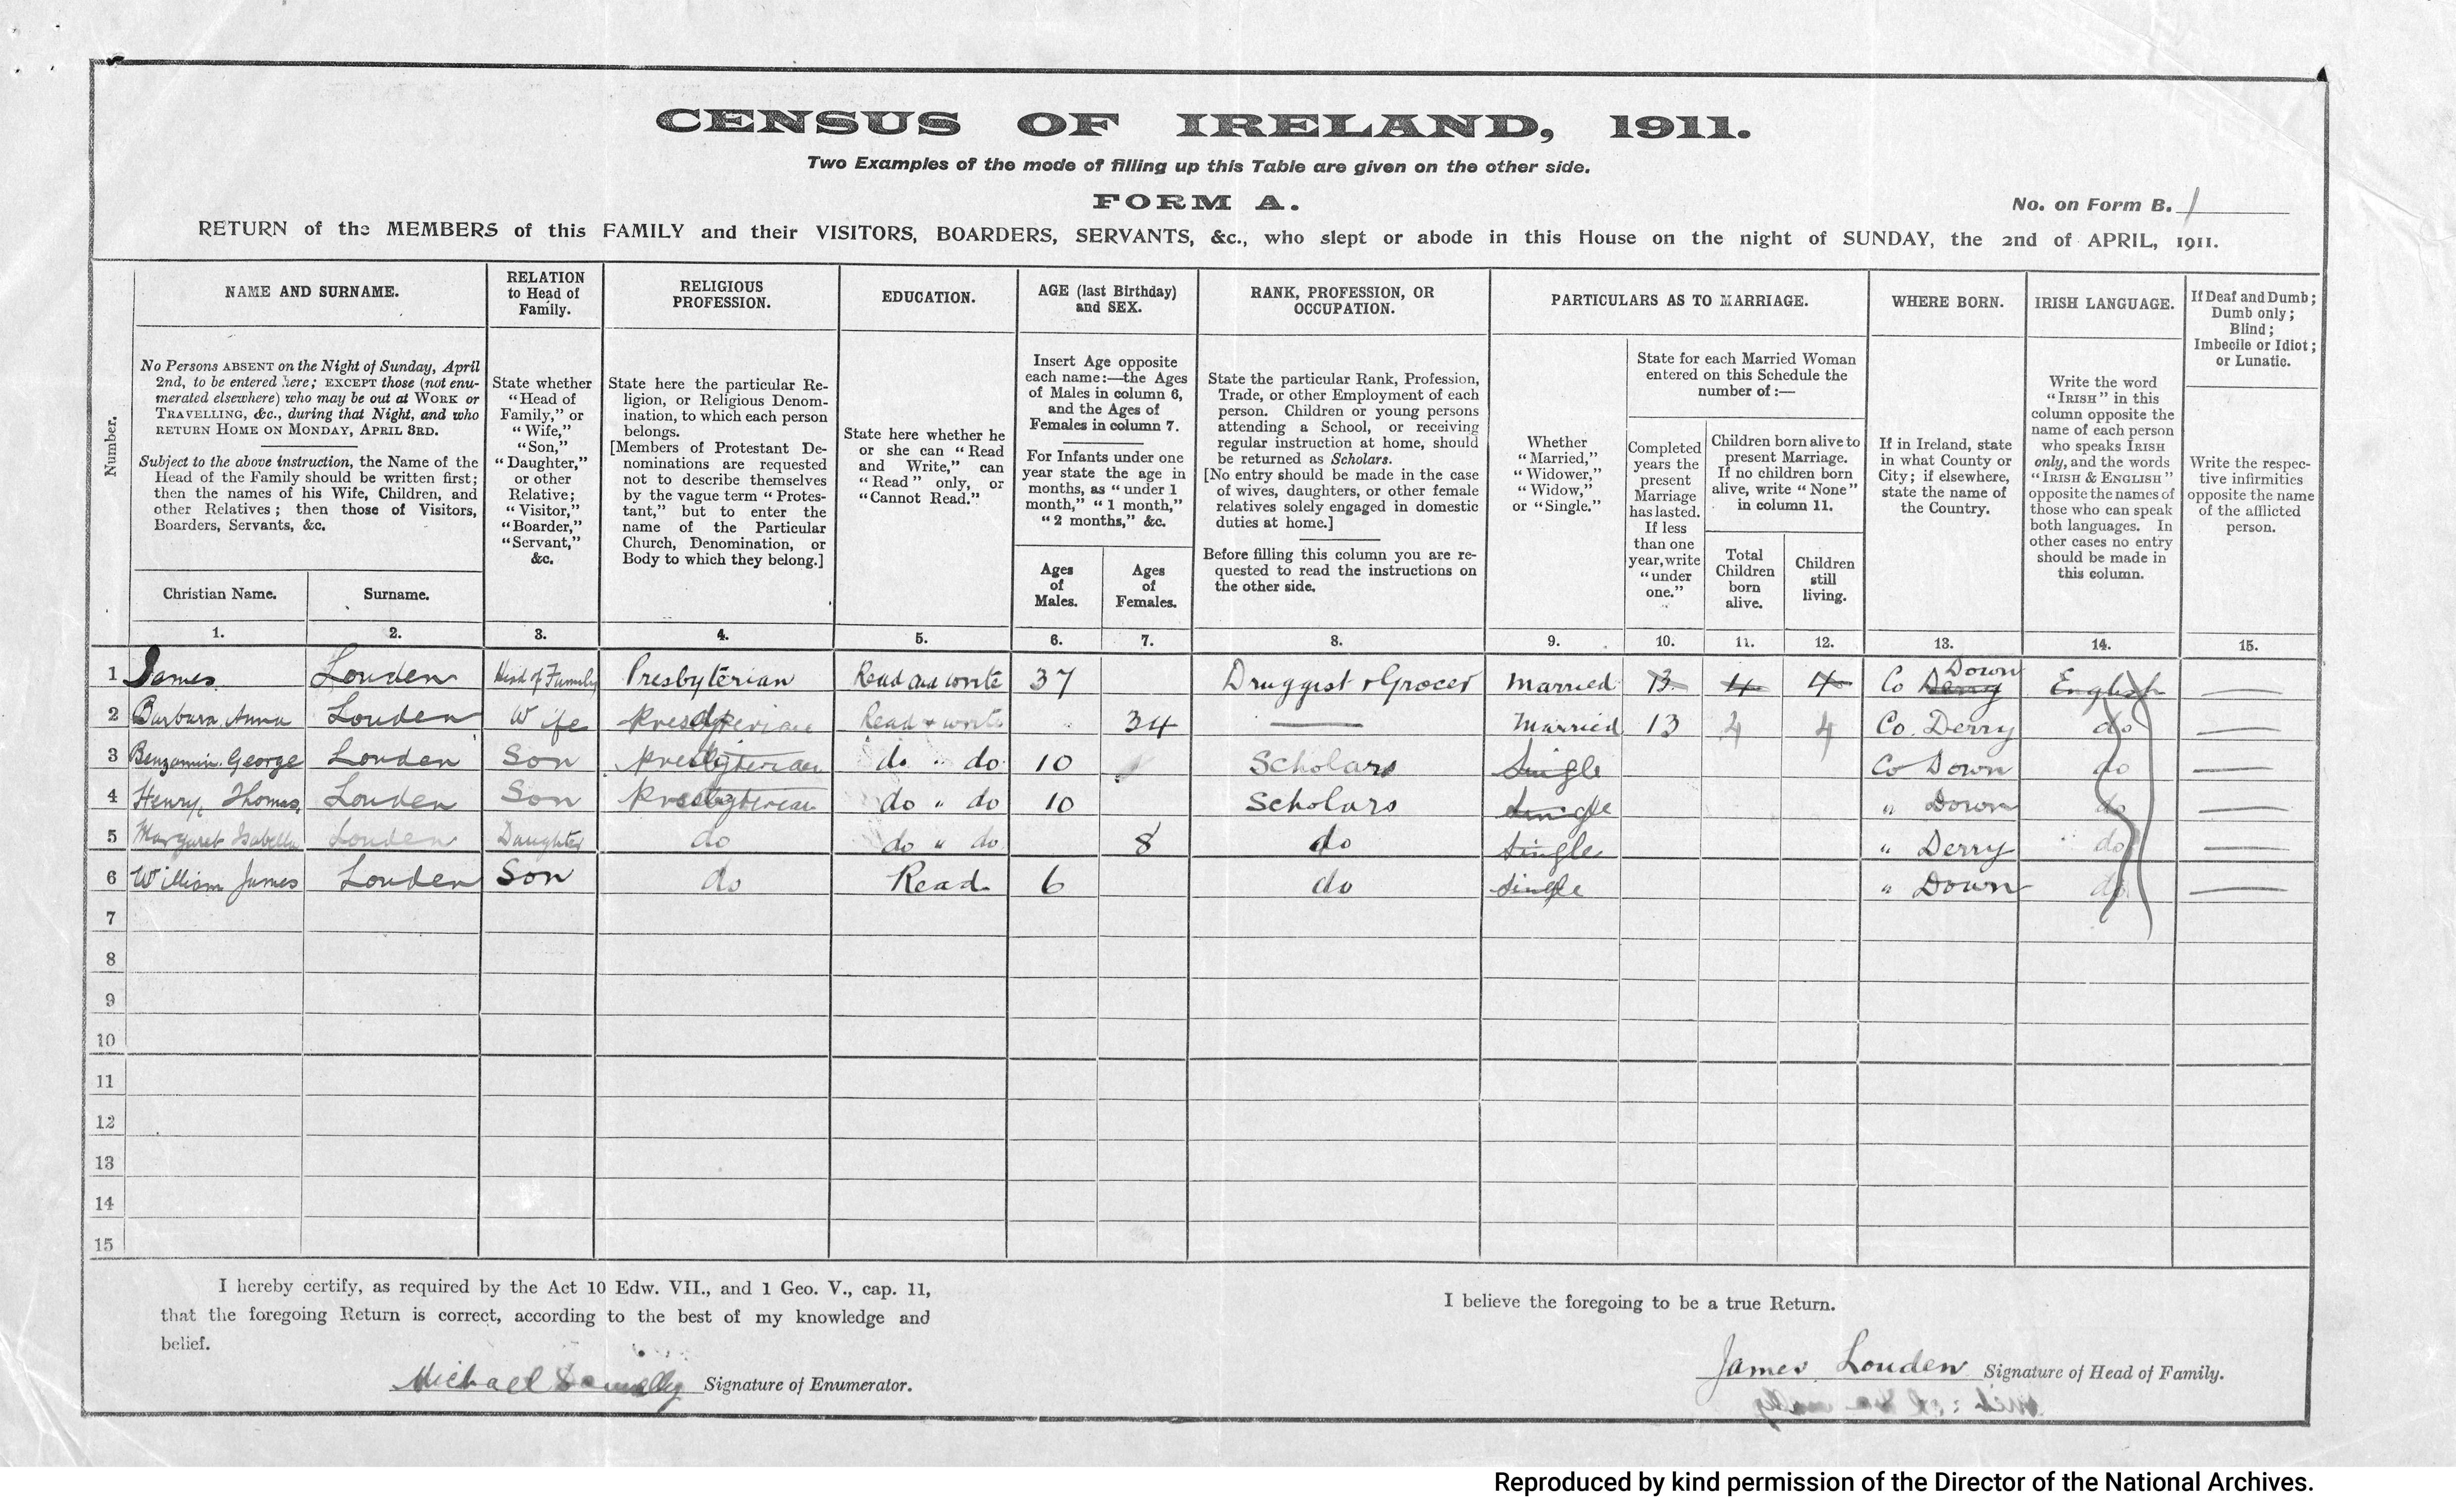 CENSUS OF IRELAND, 1911.
Two Examples of the mode of filling up this Table are given on the other side.
FORM A.
No. on Form B. 1
RETURN of the MEMBERS of this FAMILY and their VISITORS, BOARDERS, SERVANTS, &c., who slept or abode in this House on the night of SUNDAY, the 2nd of APRIL, 1911.
Number.
NAME AND SURNAME.
No Persons ABSENT on the Night of Sunday, April
2nd, to be entered here; EXCEPT those (not enu-
merated elsewhere) who may be out at WORK or
TRAVELLING, &c., during that Night, and who
RETURN HOME ON MONDAY, APRIL 3RD.
Subject to the above instruction, the Name of the
Head of the Family should be written first;
then the names of his Wife, Children, and
other Relatives; then those of Visitors,
Boarders, Servants, &c.
Christian Name.
Surname.
RELATION
to Head of
Family.
State whether
"Head of
Family," or
"Wife,"
"Son,"
"Daughter,"
or other
Relative;
"Visitor,"
"Boarder,"
"Servant,"
&c.
RELIGIOUS
PROFESSION.
State here the particular Re-
ligion, or Religious Denom-
ination, to which each person
belongs.
[Members of Protestant De-
nominations are requested
not to describe themselves
by the vague term "Protes-
tant," but to enter the
name of the Particular
Church, Denomination, or
Body to which they belong.]
EDUCATION.
State here whether he
or she can "Read
and Write," can
"Read" only, or
"Cannot Read."
AGE (last Birthday)
and SEX.
Insert Age opposite
each name:—the Ages
of Males in column 6,
and the Ages of
Females in column 7.
For Infants under one
year state the age in
months, as "under 1
month," "1 month,"
"2 months," &c.
Ages
of
Males.
Ages
of
Females.
RANK, PROFESSION, OR
OCCUPATION.
State the particular Rank, Profession,
Trade, or other Employment of each
person. Children or young persons
attending a School, or receiving
regular instruction at home, should
be returned as Scholars.
[No entry should be made in the case
of wives, daughters, or other female
relatives solely engaged in domestic
duties at home.]
Before filling this column you are re-
quested to read the instructions on
the other side.
PARTICULARS AS TO MARRIAGE.
Whether
"Married,"
"Widower,"
"Widow,"
or "Single."
State for each Married Woman
entered on this Schedule the
number of:—
Completed
years the
present
Marriage
has lasted.
If less
than one
year, write
"under
one."
Children born alive to
present Marriage.
If no children born
alive, write "None"
in column 11.
Total
Children
born
alive.
Children
still
living.
WHERE BORN.
If in Ireland, state
in what County or
City; if elsewhere,
state the name of
the Country.
IRISH LANGUAGE.
Write the word
"IRISH" in this
column opposite the
name of each person
who speaks IRISH
only, and the words
"IRISH & ENGLISH"
opposite the names of
those who can speak
both languages. In
other cases no entry
should be made in
this column.
If Deaf and Dumb;
Dumb only;
Blind;
Imbecile or Idiot;
or Lunatic.
Write the respec-
tive infirmities
opposite the name
of the afflicted
person.
1. 2. 3. 4. 5. 6. 7. 8. 9. 10. 11. 12. 13. 14. 15.
1 James Louden Head of Family Presbyterian Read and write 37 Druggist & Grocer Married 13 4 4 Co Derry Down English —
2 Barbara Anna Louden Wife Presbyterian Read & write 34 — Married 13 4 4 Co. Derry do —
3 Benjamin George Louden Son Presbyterian do " do 10 Scholars Single Co Down do —
4 Henry Thomas Louden Son Presbyterian do " do 10 Scholars Single " Down do —
5 Margaret Isabella Louden Daughter do do " do 8 do Single " Derry do —
6 William James Louden Son do Read 6 do Single " Down do —
7
8
9
10
11
12
13
14
15
I hereby certify, as required by the Act 10 Edw. VII., and 1 Geo. V., cap. 11,
that the foregoing Return is correct, according to the best of my knowledge and
belief.
Michael Donnelly Signature of Enumerator.
I believe the foregoing to be a true Return.
James Louden Signature of Head of Family.
Reproduced by kind permission of the Director of the National Archives.